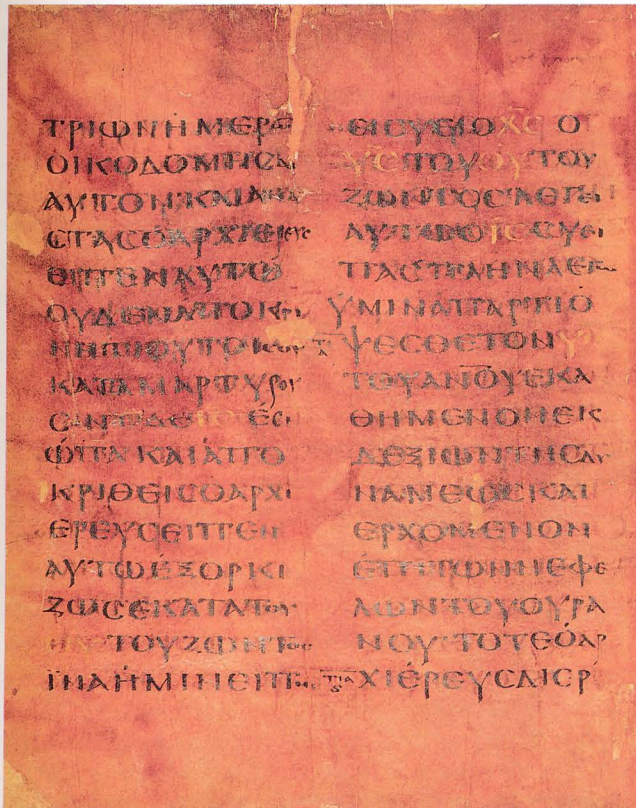 ΤΡΙΩΝΗΜΕΡΩ
ΟΙΚΟΔΟΜΗϹΑΙ
ΑΥΤΟΝΚΑΙΑΝΑ
ϹΤΑϹΟΑΡΧΙΕΡΕΥϹ
ΕΙΠΕΝΑΥΤΩ
ΟΥΔΕΝΑΠΟΚΡΙ
ΝΗΤΙΟΥΤΟΙϹΟΥ
ΚΑΤΑΜΑΡΤΥΡΟΥ
ϹΙΝΟΔΕΙϹΕϹΙ
ΩΠΑΚΑΙΑΠΟ
ΚΡΙΘΕΙϹΟΑΡΧΙ
ΕΡΕΥϹΕΙΠΕΝ
ΑΥΤΩΕΞΟΡΚΙ
ΖΩϹΕΚΑΤΑΤΟΥ
ΤΟΥΖΩΝΤΟϹ
ΪΝΑΗΜΙΝΕΙΠΗϹ
ΕΙϹΥΕΙΟΧϹΟ
ΥϹΤΟΥΘΥΤΟΥ
ΖΩΝΤΟϹΛΕΓΕΙ
ΑΥΤΩΟΙϹϹΥΕΙ
ΠΑϹΠΛΗΝΛΕΓΩ
ΥΜΙΝΑΠΑΡΤΙΟ
ΨΕϹΘΕΤΟΝΥΝ
ΤΟΥΑΝΟΥΚΑ
ΘΗΜΕΝΟΝΕΚ
ΔΕΞΙΩΝΤΗϹΔΥ
ΝΑΜΕΩϹΚΑΙ
ΕΡΧΟΜΕΝΟΝ
ΕΠΙΤΩΝΝΕΦΕ
ΛΩΝΤΟΥΟΥΡΑ
ΝΟΥΤΟΤΕΟΑΡ
ΧΙΕΡΕΥϹΔΙΕΡ